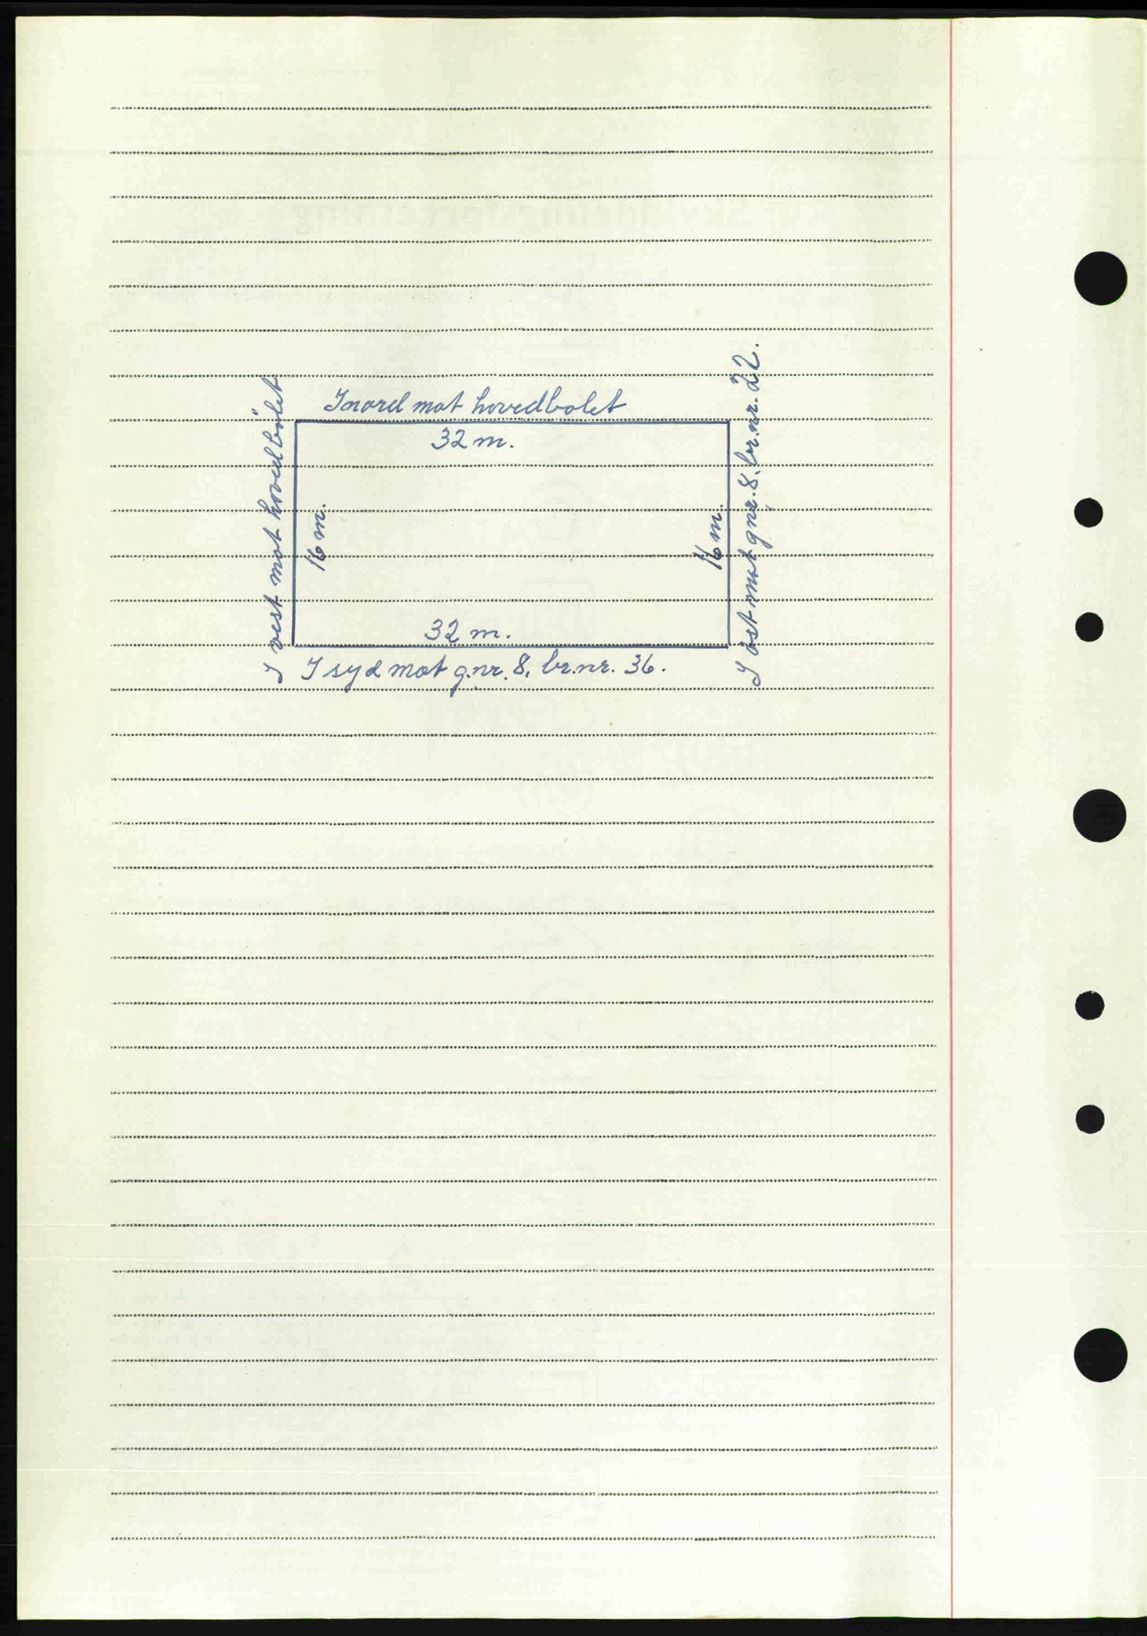 I nord mot hovedbølet
32 m.
I vest mot hovedbølet
16 m.
16 m.
I øst mot gnr. 8, br.nr. 22.
32 m.
I syd mot g.nr. 8, br.nr. 36.